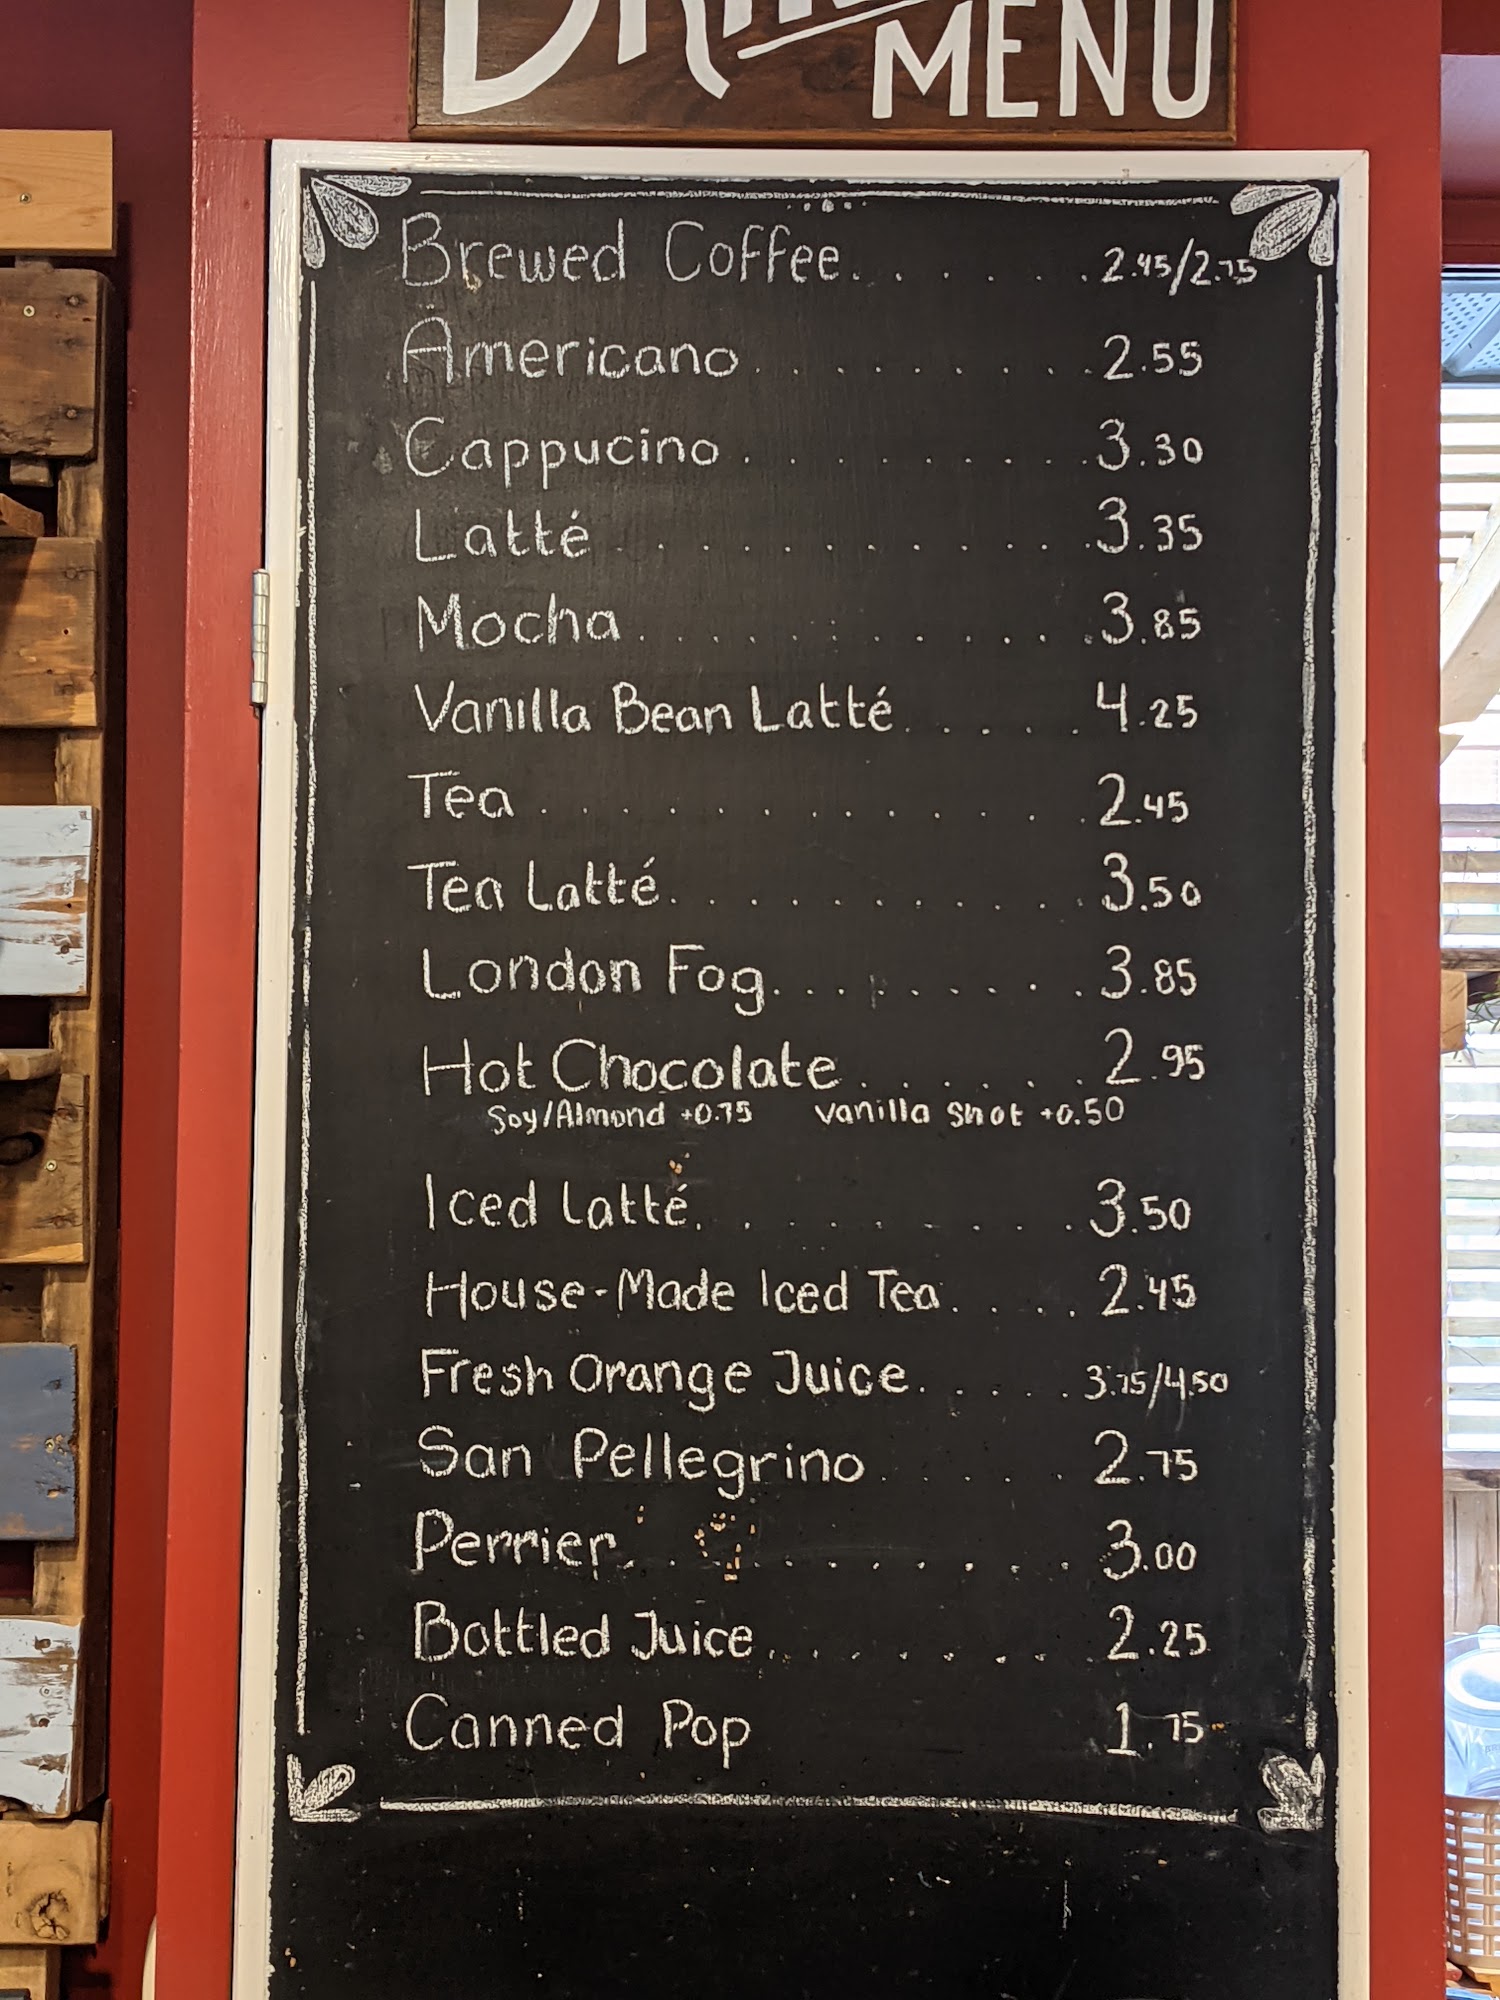 MENU
Brewed Coffee. . . . . . . 2.45/2.75
Americano . . . . . . . . . . 2.55
Cappucino . . . . . . . . . . 3.30
Latté . . . . . . . . . . . . 3.35
Mocha . . . . . . . . . . . . 3.85
Vanilla Bean Latté . . . . . 4.25
Tea . . . . . . . . . . . . . 2.45
Tea Latté. . . . . . . . . . . 3.50
London Fog. . . . . . . . . . 3.85
Hot Chocolate . . . . . . . 2.95
Soy/Almond +0.75 Vanilla Shot +0.50
Iced Latté. . . . . . . . . . 3.50
House-Made Iced Tea. . . . 2.45
Fresh Orange Juice. . . . . 3.75/4.50
San Pellegrino . . . . . 2.75
Perrier. . . . . . . . . . 3.00
Bottled Juice. . . . . . . . 2.25
Canned Pop 1.75